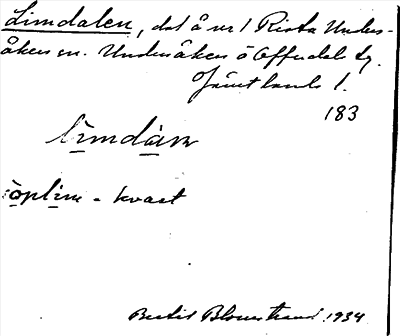 Limdalen, del å nr 1 Rista Unders-
åkers sn. Undersåkers o Offerdals tg.
Jämtlands l.
183
lìmdàɴ
sòplìm = kvast
Bertil Blomstrand 1934